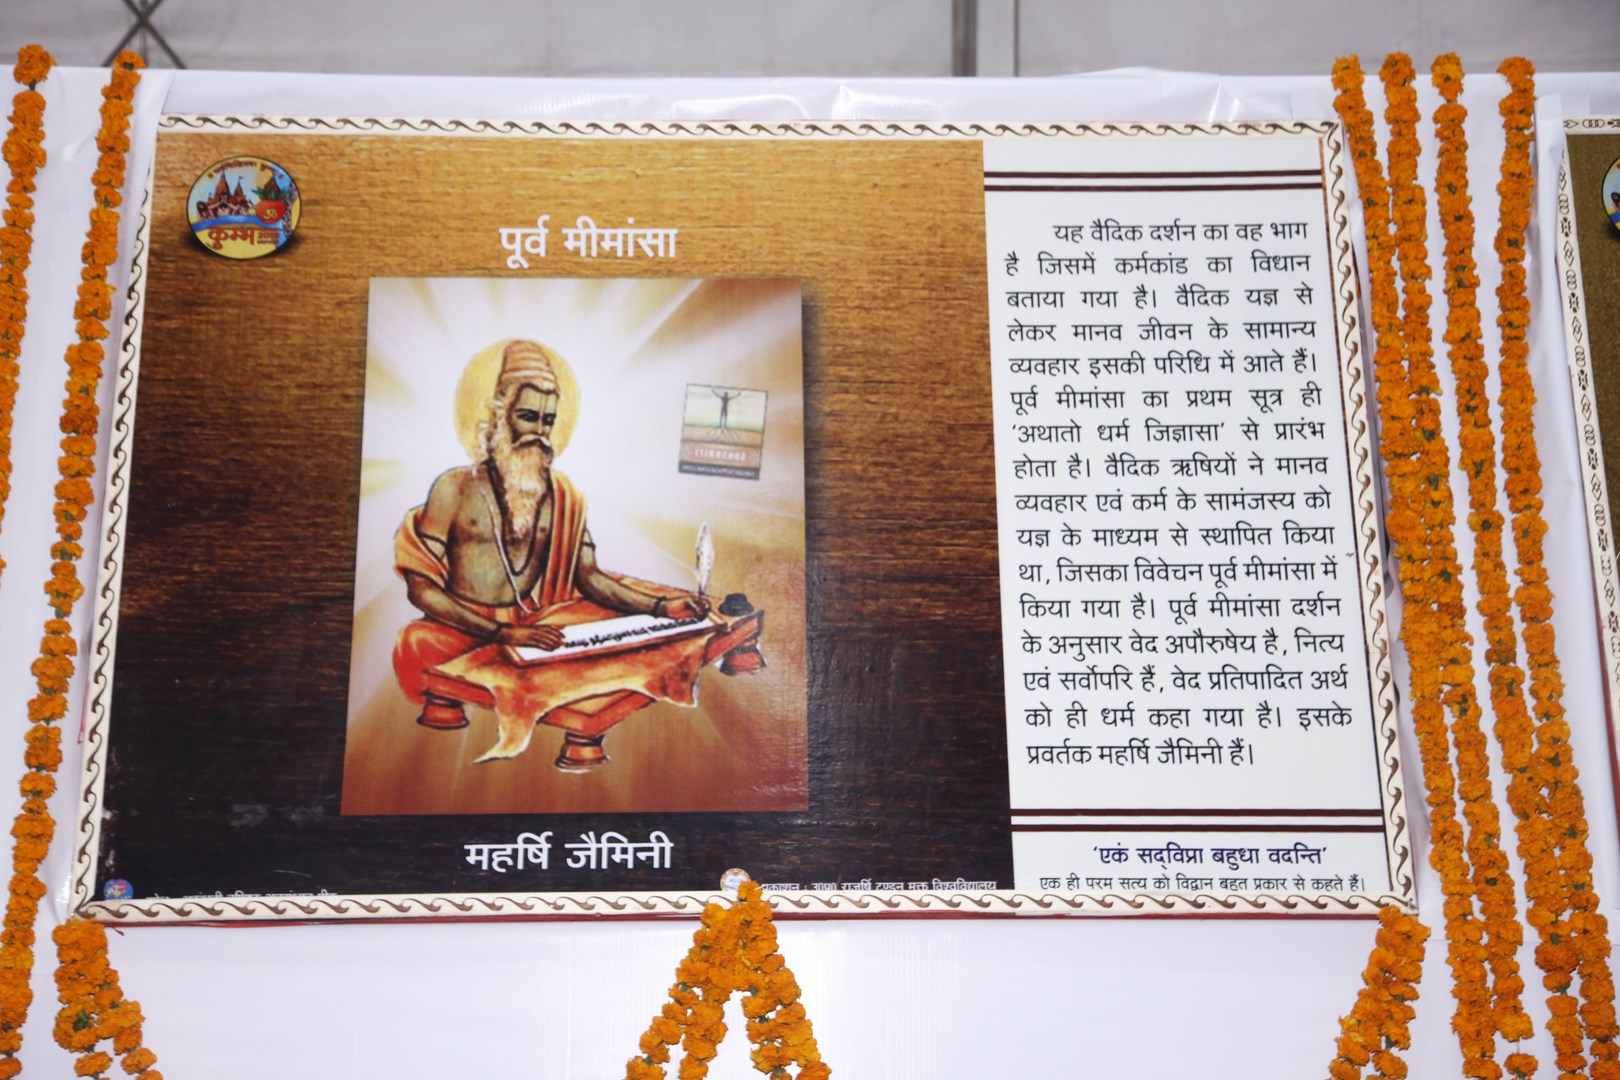 कुम्भ
पूर्व मीमांसा
महर्षि जैमिनी
यह वैदिक दर्शन का वह भाग
है जिसमें कर्मकांड का विधान
बताया गया है। वैदिक यज्ञ से
लेकर मानव जीवन के सामान्य
व्यवहार इसकी परिधि में आते हैं।
पूर्व मीमांसा का प्रथम सूत्र ही
'अथातो धर्म जिज्ञासा' से प्रारंभ
होता है। वैदिक ऋषियों ने मानव
व्यवहार एवं कर्म के सामंजस्य को
यज्ञ के माध्यम से स्थापित किया
था, जिसका विवेचन पूर्व मीमांसा में
किया गया है। पूर्व मीमांसा दर्शन
के अनुसार वेद अपौरुषेय है, नित्य
एवं सर्वोपरि हैं, वेद प्रतिपादित अर्थ
को ही धर्म कहा गया है। इसके
प्रवर्तक महर्षि जैमिनी हैं।
'एकं सद्विप्रा बहुधा वदन्ति'
एक ही परम सत्य को विद्वान बहुत प्रकार से कहते हैं।
राजर्षि टण्डन मुक्त विश्वविद्यालय